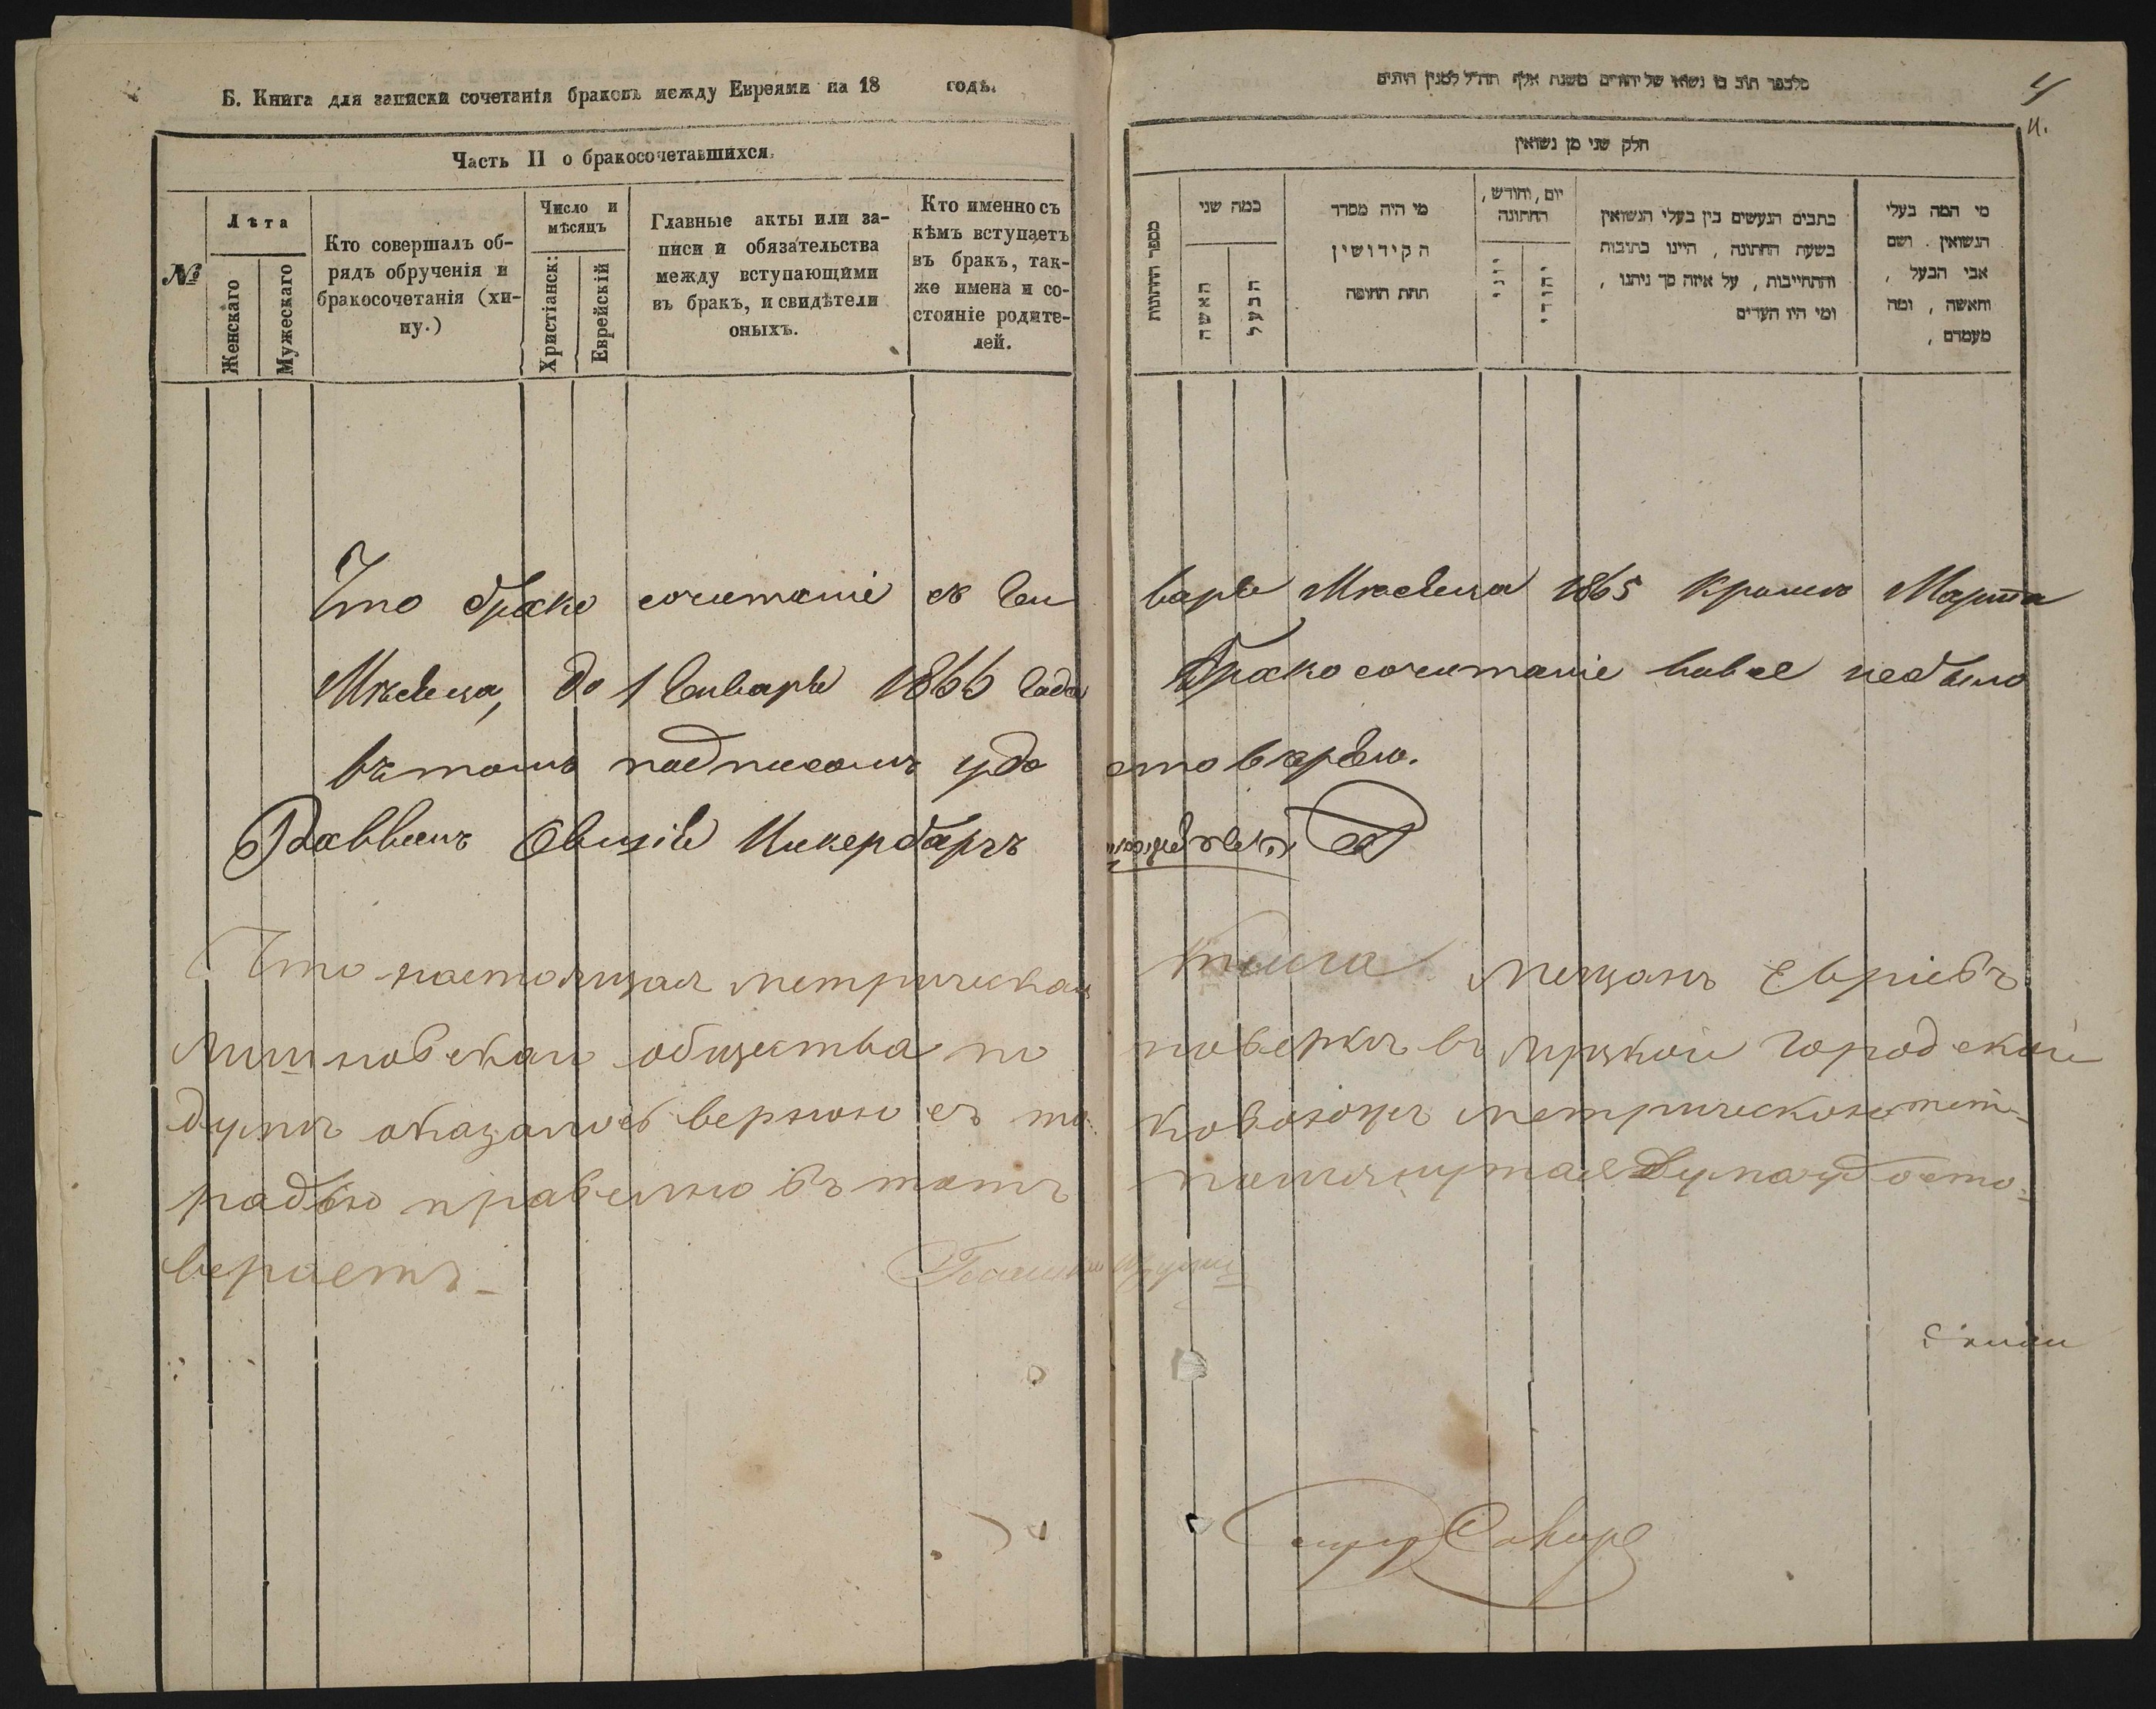 Б. Книга для записки сочетанія браковъ между Евреями на 18 годъ.
Часть II о бракосочетавшихся.
№
Лѣта
Женскаго
Мужескаго
Кто совершалъ об-
рядъ обрученія и
бракосочетанія (хи-
пу.)
Число и
мѣсяцъ
Христіанск:
Еврейскій
Главные акты или за-
писи и обязательства
между вступающими
въ бракъ, и свидѣтели
оныхъ.
Кто именно съ
кѣмъ вступаетъ
въ бракъ, так-
же имена и со-
стояніе родите-
лей.
4
חלק שני מן נשואין
מספר החתונות
כמה שני
האשה
הבעל
מי היה מסדר
הקידושין
תחת החופה
יום, וחודש,
החתונה
יווני
יהודי
כתבים הנעשים בין בעלי הנשואין
בשעת החתונה, היינו כתובות
והתחייבות, על איזה סך ניתנו,
ומי היו העדים
מי המה בעלי
הנשואין. ושם
אבי הבעל,
והאשה, ומה
מעמדם,
Что брако сочетаніе съ Ген варе Мѣсеца 1865 кромѣ Марта
Мѣсеца, до 1 Генваре 1866 Года Брако сочетаніе вовсе небыло
въ томъ подписомъ удо стовѣрею.
Раввинъ
Что настоящая метрическая книга мещанъ Евріевъ
общества по поверкѣ въ Луцкой городской
думѣ оказалось верною съ та ковоюже метрическою тет-
радью правелно въ томъ помянутая Дума удосто-
вераетъ